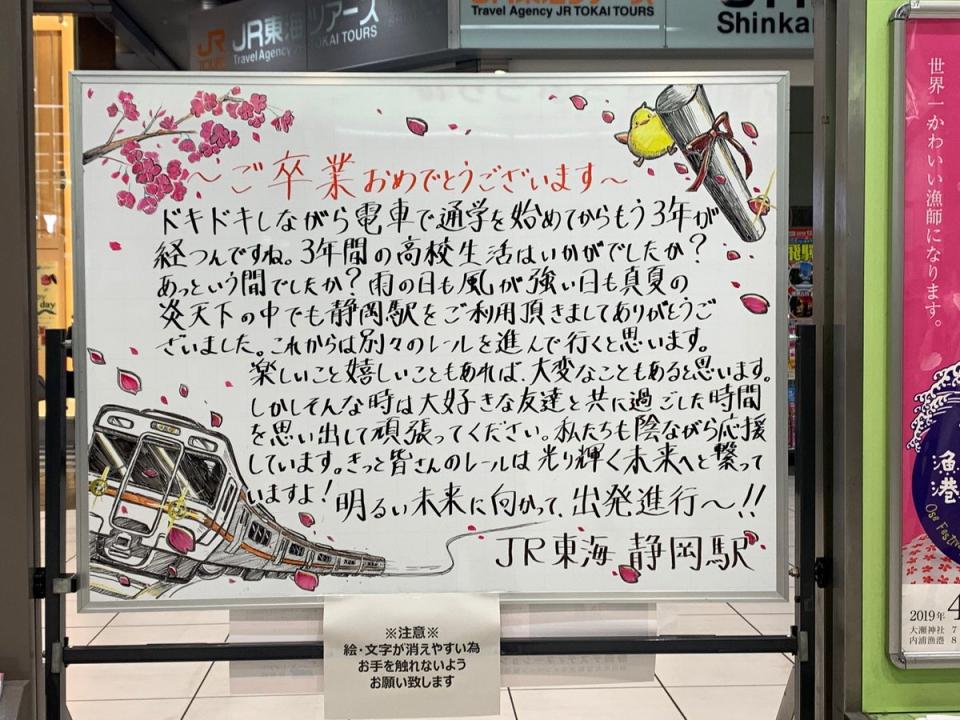 JR JR東海ツアーズ
Travel Agency JR TOKAI TOURS
Travel Agency JR TOKAI TOURS
Shinkan
～ご卒業おめでとうございます～
ドキドキしながら電車で通学を始めてからもう3年が
経つんですね。3年間の高校生活はいかがでしたか？
あっという間でしたか？雨の日も風が強い日も真夏の
炎天下の中でも静岡駅をご利用頂きましてありがとうご
ざいました。これからは別々のレールを進んで行くと思います。
楽しいこと嬉しいこともあれば、大変なこともあると思います。
しかしそんな時は大好きな友達と共に過ごした時間
を思い出して頑張ってください。私たちも陰ながら応援
しています。きっと皆さんのレールは光り輝く未来へと繋って
いますよ！明るい未来に向かって、出発進行～!!
JR東海 静岡駅
※注意※
絵・文字が消えやすい為
お手を触れないよう
お願い致します
世界一かわいい漁師になります。
漁港
Ose Festiv
2019年4
大瀬神社 7
内浦漁港 8